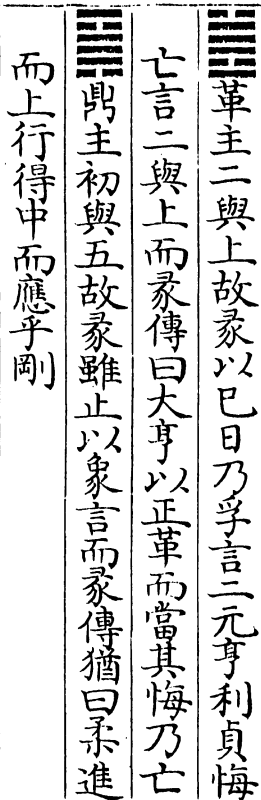 ䷰革主二與上故彖以巳日乃孚言二元亨利貞悔
亡言二與上而彖傳曰大亨以正革而當其悔乃亡
䷱鼎主初與五故彖雖止以象言而彖傳猶曰柔進
而上行得中而應乎剛